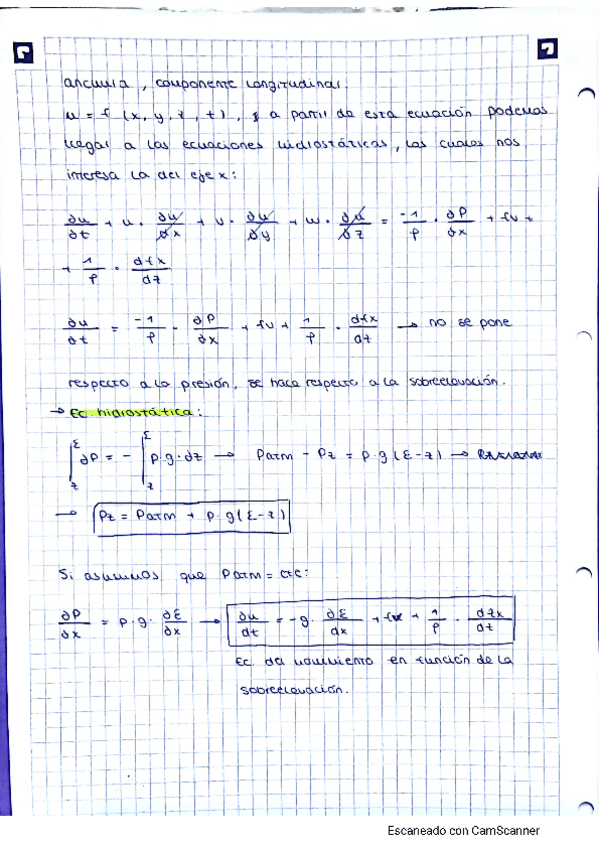 anchura, componente longitudinal.
u = f (x, y, z, t), y a partir de esta ecuación podemos
llegar a las ecuaciones hidrostáticas, las cuales nos
interesa la del eje x:
∂u/∂t + u · ∂u/∂x + v · ∂u/∂y + w · ∂u/∂z = -1/ρ · ∂P/∂x + fv +
+ 1/ρ · dτx/dz
∂u/∂t = -1/ρ · ∂P/∂x + fv + 1/ρ · dτx/dz → no se pone
respecto a la presión, se hace respecto a la sobreelevación.
→ Ec hidrostática:
∫_z^ξ ∂P = - ∫_z^ξ ρ · g · dz → Patm - Pz = ρ · g (ξ - z) →
→ Pz = Patm + ρ · g (ξ - z)
Si asumimos que Patm = cte:
∂P/∂x = ρ · g · ∂ξ/∂x → ∂u/dt = -g · ∂ξ/dx + fv + 1/ρ · dτx/dz
Ec del movimiento en función de la
sobreelevación.
Escaneado con CamScanner